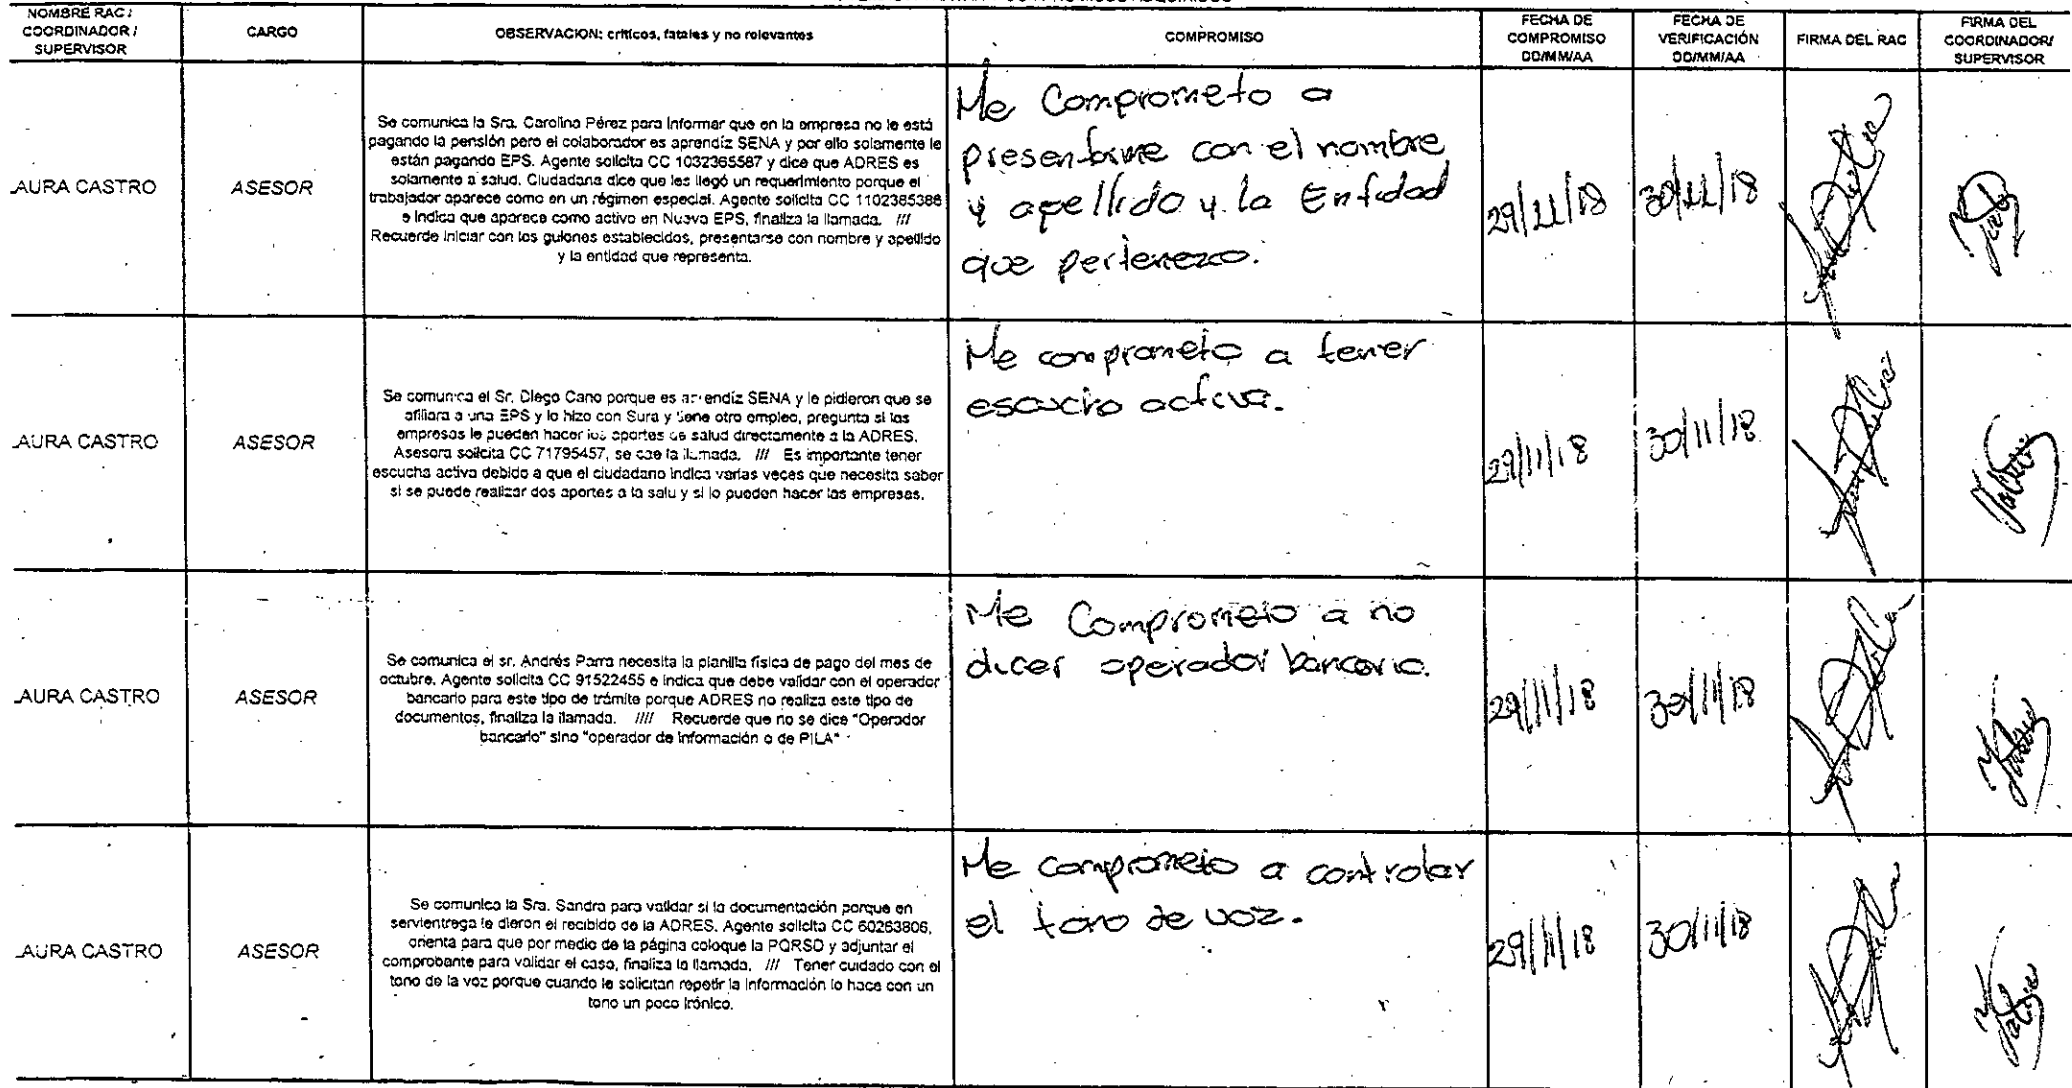 NOMBRE RAC /
COORDINADOR /
SUPERVISOR
CARGO
OBSERVACION: críticos, fatales y no relevantes
COMPROMISO
FECHA DE
COMPROMISO
DD/MM/AA
FECHA DE
VERIFICACIÓN
DD/MM/AA
FIRMA DEL RAC
FIRMA DEL
COORDINADOR/
SUPERVISOR
AURA CASTRO
ASESOR
Se comunica la Sra. Carolina Pérez para informar que en la empresa no le está
pagando la pensión pero el colaborador es aprendiz SENA y por ello solamente le
están pagando EPS. Agente solicita CC 1032365587 y dice que ADRES es
solamente a salud. Ciudadana dice que les llegó un requerimiento porque el
trabajador aparece como en un régimen especial. Agente solicita CC 1102385388
e indica que aparece como activo en Nueva EPS, finaliza la llamada. ///
Recuerde iniciar con los guiones establecidos, presentarse con nombre y apellido
y la entidad que representa.
Me Comprometo a
presentarme con el nombre
y apellido y la Entidad
que pertenezco.
29/11/18
30/11/18
AURA CASTRO
ASESOR
Se comunica el Sr. Diego Cano porque es aprendiz SENA y le pidieron que se
afiliara a una EPS y lo hizo con Sura y tiene otro empleo, pregunta si las
empresas le pueden hacer los aportes de salud directamente a la ADRES.
Asesora solicita CC 71795457, se cae la llamada. /// Es importante tener
escucha activa debido a que el ciudadano indica varias veces que necesita saber
si se puede realizar dos aportes a la salu y si lo pueden hacer las empresas.
Me comprometo a tener
escucha activa.
29/11/18
30/11/18
AURA CASTRO
ASESOR
Se comunica el sr. Andrés Parra necesita la planilla física de pago del mes de
octubre. Agente solicita CC 91522455 e indica que debe validar con el operador
bancario para este tipo de trámite porque ADRES no realiza este tipo de
documentos, finaliza la llamada. //// Recuerde que no se dice "Operador
bancario" sino "operador de información o de PILA"
Me Comprometo a no
dicer operador bancario.
29/11/18
30/11/18
AURA CASTRO
ASESOR
Se comunica la Sra. Sandra para validar si la documentación porque en
servientrega le dieron el recibido de la ADRES. Agente solicita CC 60263806,
orienta para que por medio de la página coloque la PQRSD y adjuntar el
comprobante para validar el caso, finaliza la llamada. /// Tener cuidado con el
tono de la voz porque cuando le solicitan repetir la información lo hace con un
tono un poco irónico.
Me comprometo a controlar
el tono de voz.
29/11/18
30/11/18